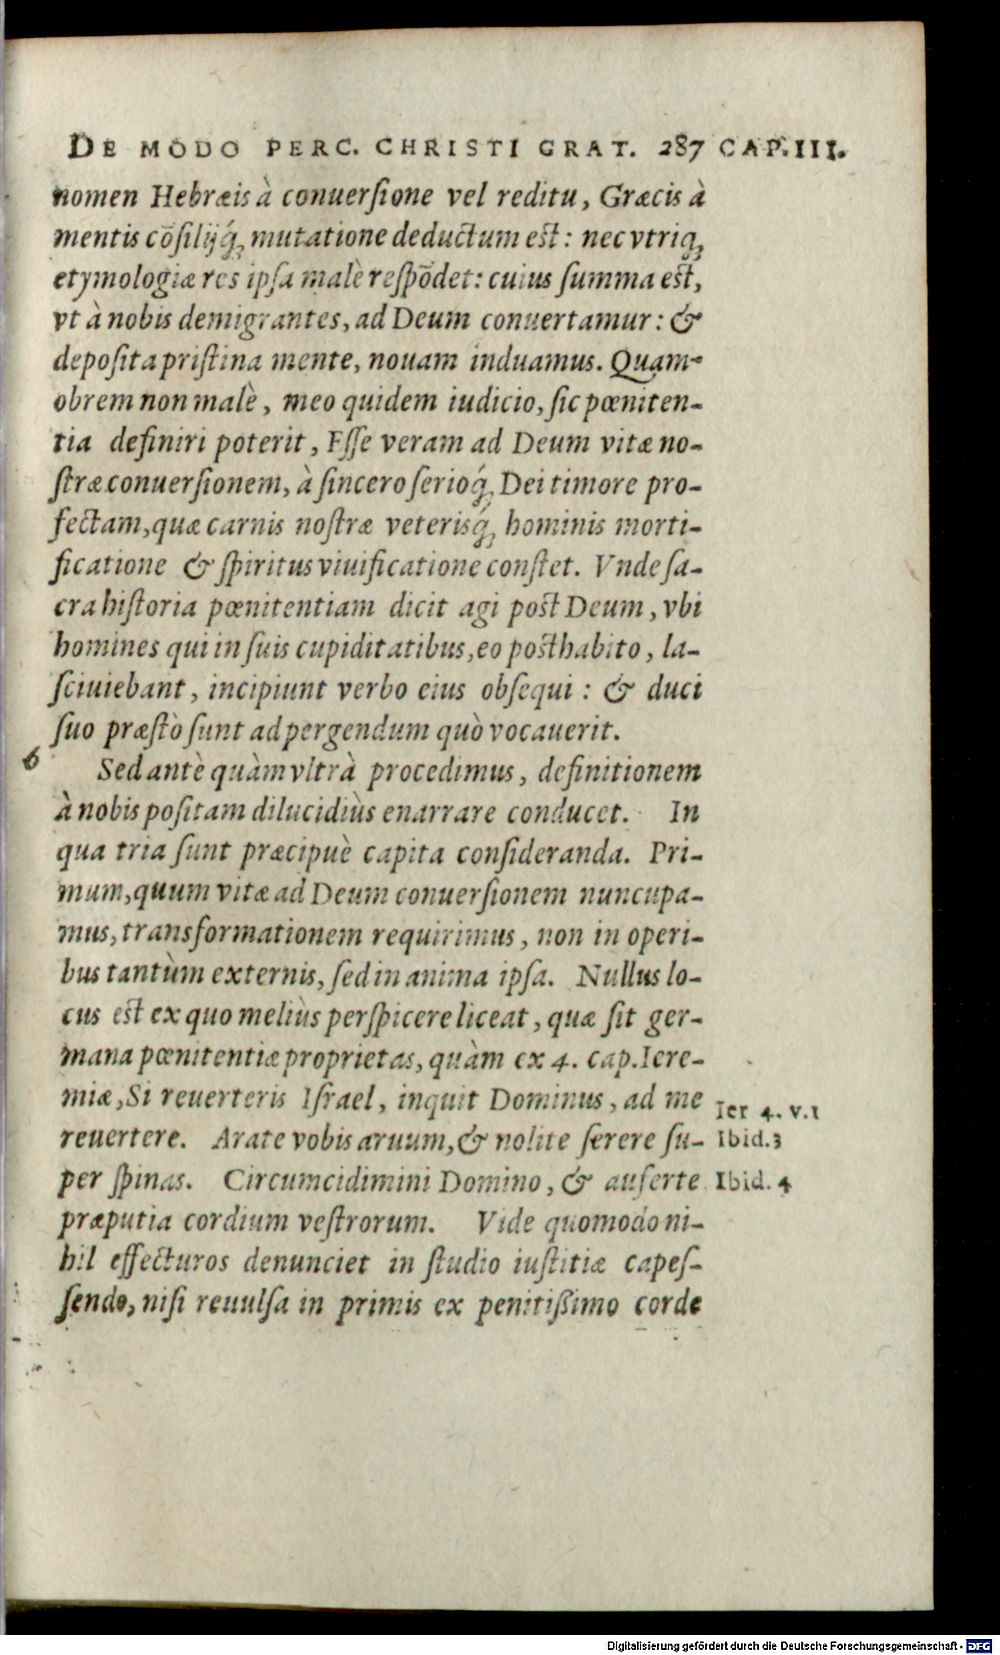 DE MODO PERC. CHRISTI GRAT. 287 CAP. III.
nomen Hebræis à conuerſione vel reditu, Græcis à
mentis cōſilijq́ꝫ mutatione deductum est: nec vtriqꝫ
etymologiæ res ipſa malè reſpōdet: cuius ſumma est,
vt à nobis demigrantes, ad Deum conuertamur: &
depoſita priſtina mente, nouam induamus. Quam-
obrem non malè, meo quidem iudicio, ſic pœniten-
tia definiri poterit, Eſſe veram ad Deum vitæ no-
ſtræ conuerſionem, à ſincero ſerioq́ꝫ Dei timore pro-
fectam, quæ carnis noſtræ veterisq́ꝫ hominis morti-
ficatione & ſpiritus viuificatione conſtet. Vnde ſa-
cra hiſtoria pœnitentiam dicit agi post Deum, vbi
homines qui in ſuis cupiditatibus, eo posthabito, la-
ſciuiebant, incipiunt verbo eius obſequi: & duci
ſuo præſtò ſunt ad pergendum quò vocauerit.
6 Sed antè quàm vltrà procedimus, definitionem
à nobis poſitam dilucidiùs enarrare conducet. In
qua tria ſunt præcipuè capita conſideranda. Pri-
mum, quum vitæ ad Deum conuerſionem nuncupa-
mus, transformationem requirimus, non in operi-
bus tantùm externis, ſed in anima ipſa. Nullus lo-
cus est ex quo meliùs perſpicere liceat, quæ ſit ger-
mana pœnitentiæ proprietas, quàm ex 4. cap. Iere-
miæ, Si reuerteris Iſrael, inquit Dominus, ad me
Ier 4. v.1
reuertere. Arate vobis aruum, & nolite ſerere ſu-
Ibid.3
per ſpinas. Circumcidimini Domino, & auferte
Ibid. 4
præputia cordium veſtrorum. Vide quomodo ni-
hil effecturos denunciet in ſtudio iuſtitiæ capeſ-
ſendo, niſi reuulſa in primis ex penitißimo corde
Digitalisierung gefördert durch die Deutsche Forschungsgemeinschaft - DFG